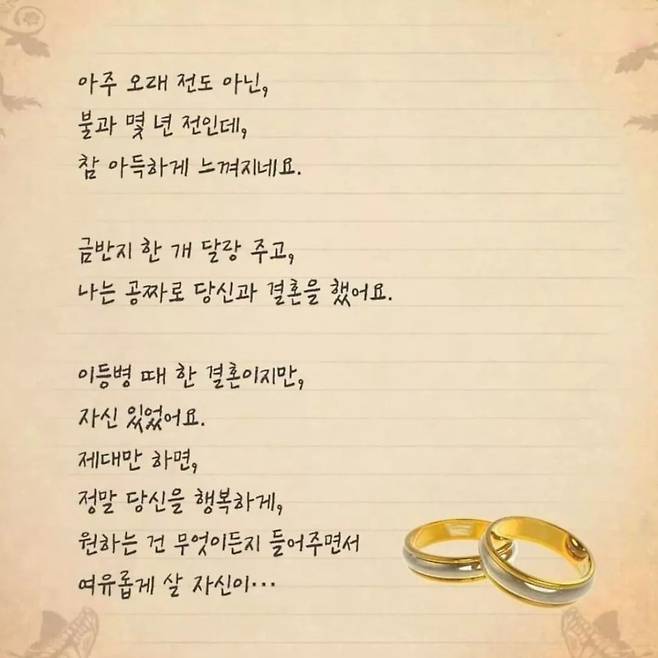 아주 오래 전도 아닌,
불과 몇 년 전인데,
참 아득하게 느껴지네요.
금반지 한 개 달랑 주고,
나는 공짜로 당신과 결혼을 했어요.
이등병 때 한 결혼이지만,
자신 있었어요.
제대만 하면,
정말 당신을 행복하게,
원하는 건 무엇이든지 들어주면서
여유롭게 살 자신이…